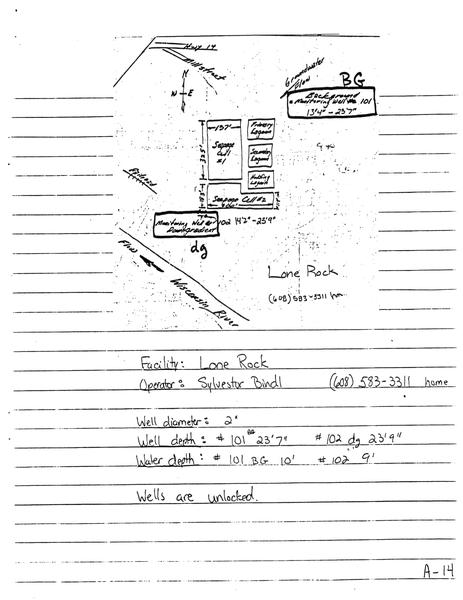 Hwy 14
Hill street
N
W E
Groundwater
Flow
BG
Background
Monitoring Well No. 101
13'4" - 23'7"
137'
Seepage
Cell
#1
Primary
Lagoon
Secondary
Lagoon
Holding
Lagoon
Seepage Cell #2
Monitoring Well
Downgradient
102 14'2" - 23'9"
dg
Flow
Wisconsin River
Lone Rock
(608) 583-3311 hm
Facility: Lone Rock
Operator: Sylvester Bindl (608) 583-3311 home
Well diameter: 2"
Well depth: #101 BG 23'7" #102 dg 23'9"
Water depth: #101 BG 10' #102 9'
Wells are unlocked.
A-14